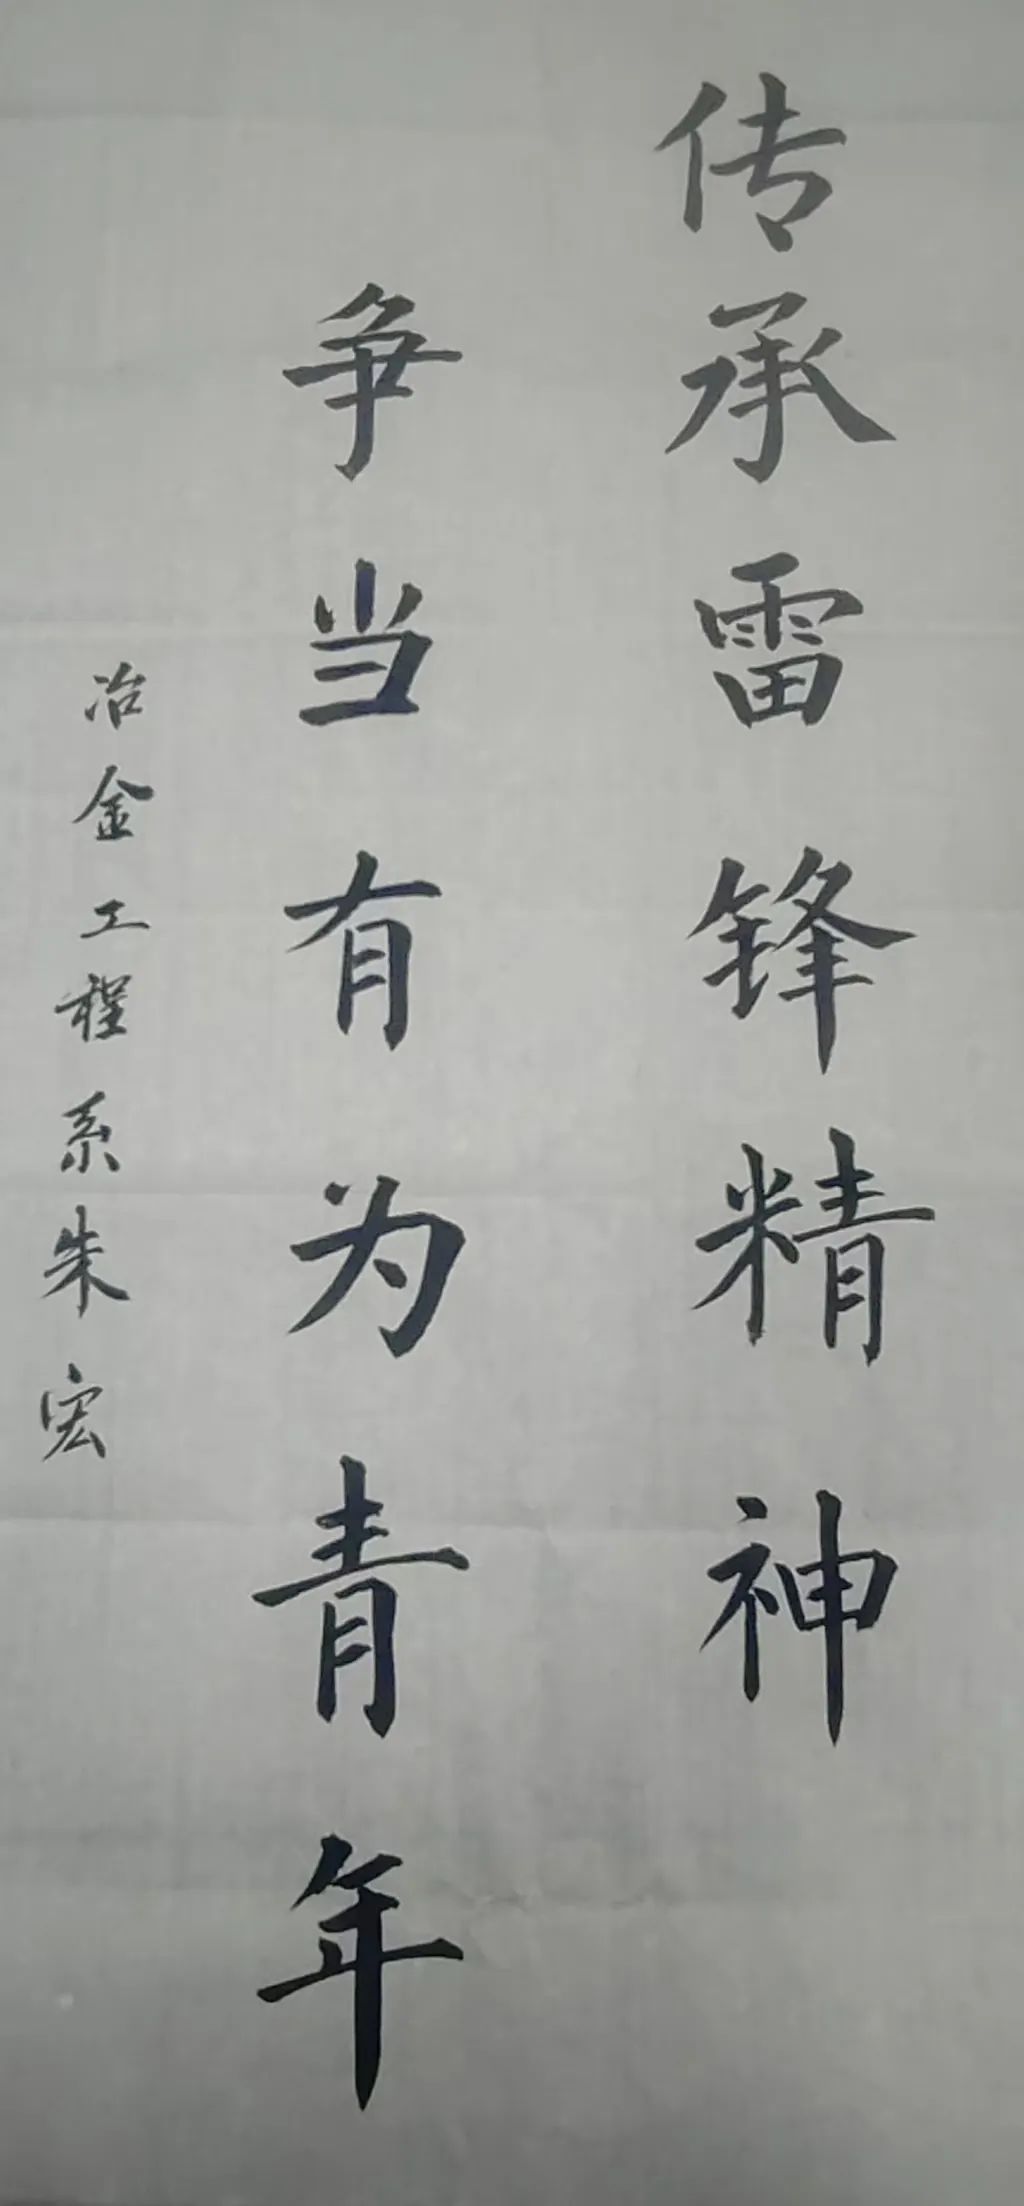 传承雷锋精神
争当有为青年
冶金工程系朱宏